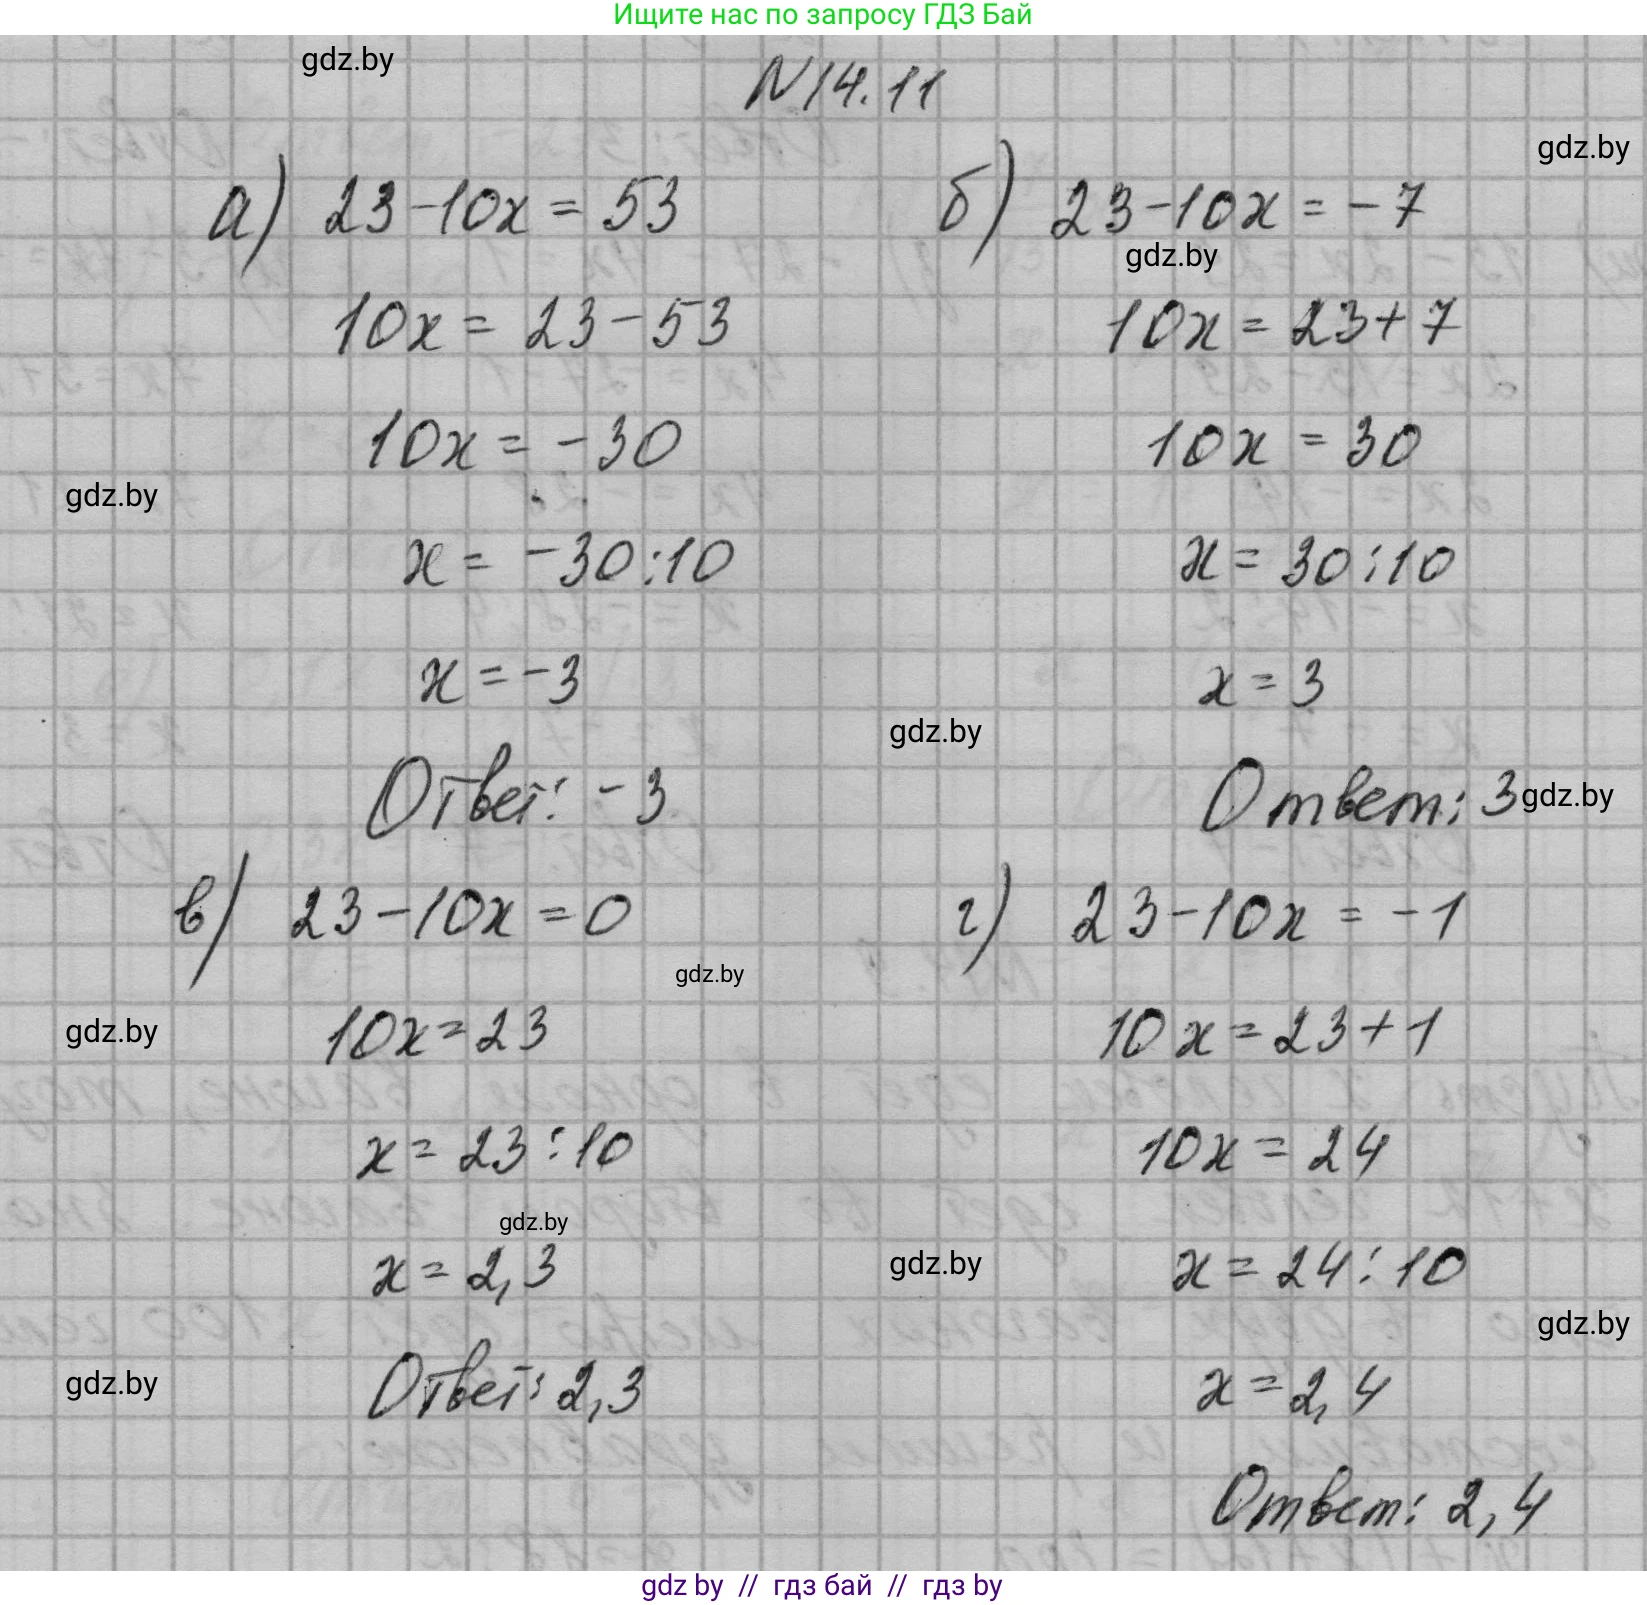 Ищите нас по запросу ГДЗ Бай
gdz.by
N14.11
gdz.by
а) 23-10x = 53
10x = 23-53
10x = -30
gdz.by
x = -30:10
x = -3
Ответ: -3
б) 23-10x = -7
gdz.by
10x = 23+7
10x = 30
x = 30:10
x = 3
gdz.by
Ответ: 3
gdz.by
в) 23-10x = 0
gdz.by
gdz.by
10x = 23
x = 23:10
gdz.by
x = 2,3
gdz.by
Ответ: 2,3
г) 23-10x = -1
10x = 23+1
10x = 24
gdz.by
x = 24:10
gdz.by
x = 2,4
Ответ: 2,4
gdz by // гдз бай // гдз by